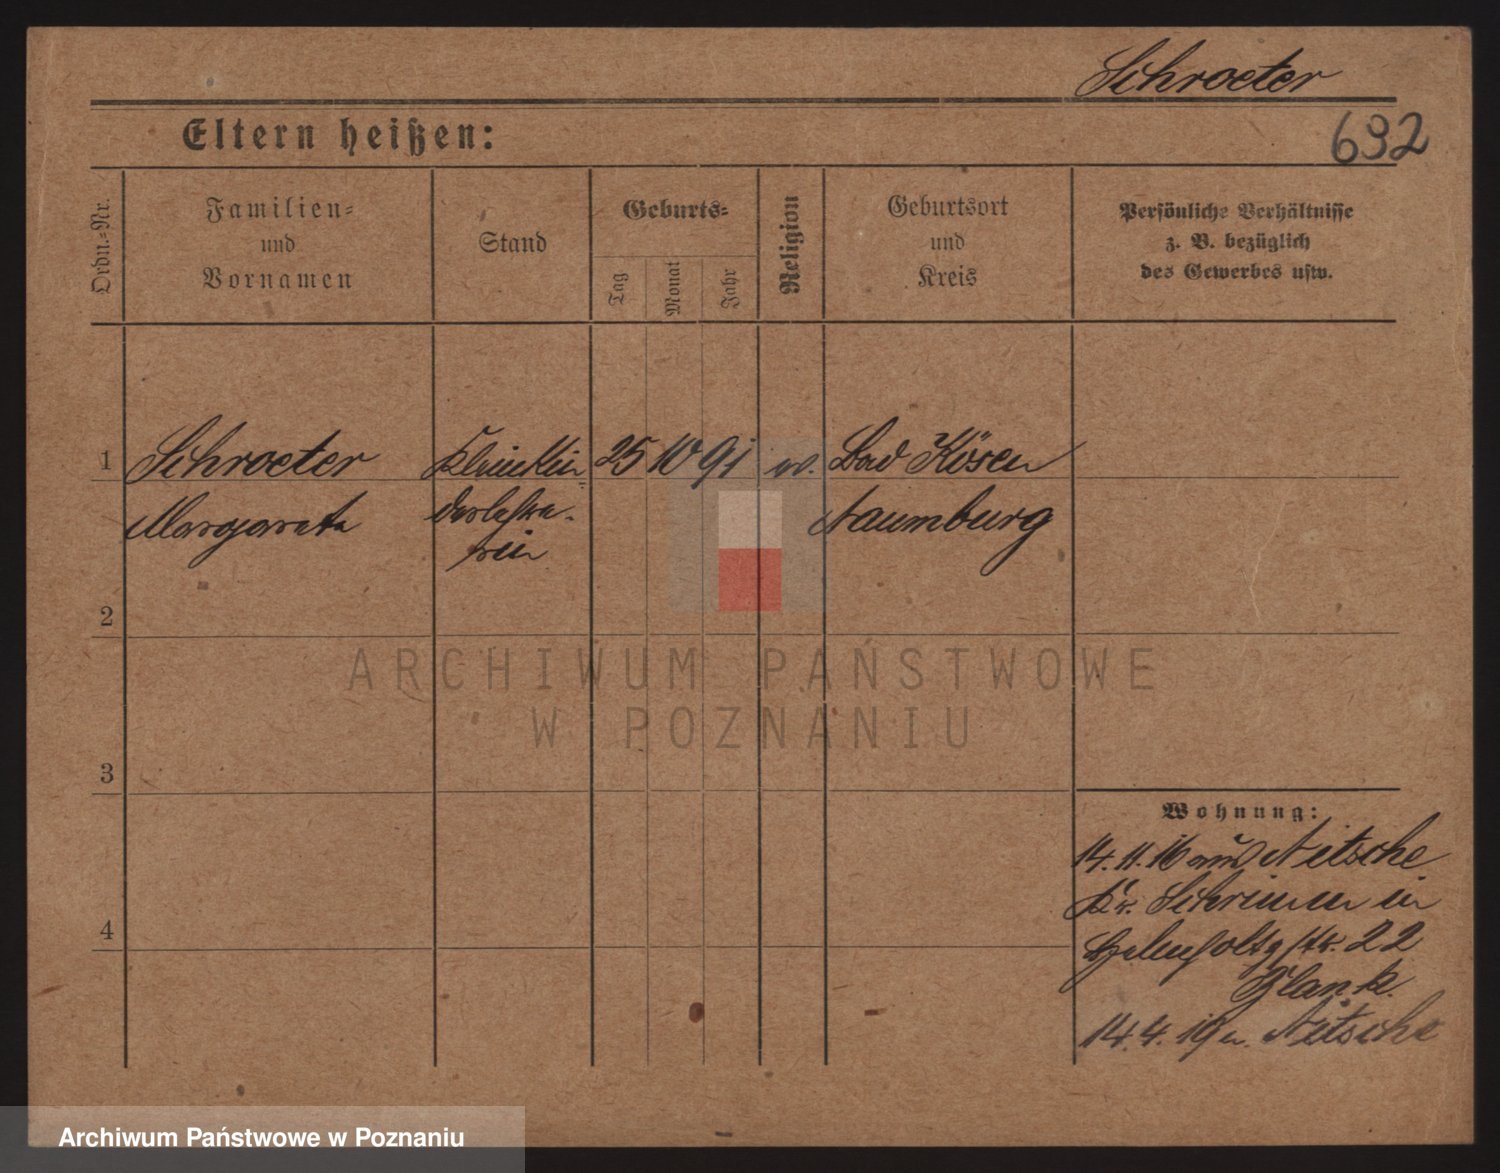 Schroeter
692
Eltern heißen:
Ordn.=Nr.
Familien=
und
Vornamen
Stand
Geburts=
Tag
Monat
Jahr
Religion
Geburtsort
und
Kreis
Persönliche Verhältnisse
z. B. bezüglich
des Gewerbes usw.
1
Schroeter
Kleinkin
25 10 91
ev.
Bad Kösen
Margarete
derlehre-
rin
Naumburg
2
ARCHIWUM PAŃSTWOWE
W POZNANIU
3
Wohnung:
14. 11. 16 aus Nitsche
Kr. Schrimm in
4
Helmholtzstr. 22
Blank.
14. 4. 19 n. Nitsche
Archiwum Państwowe w Poznaniu